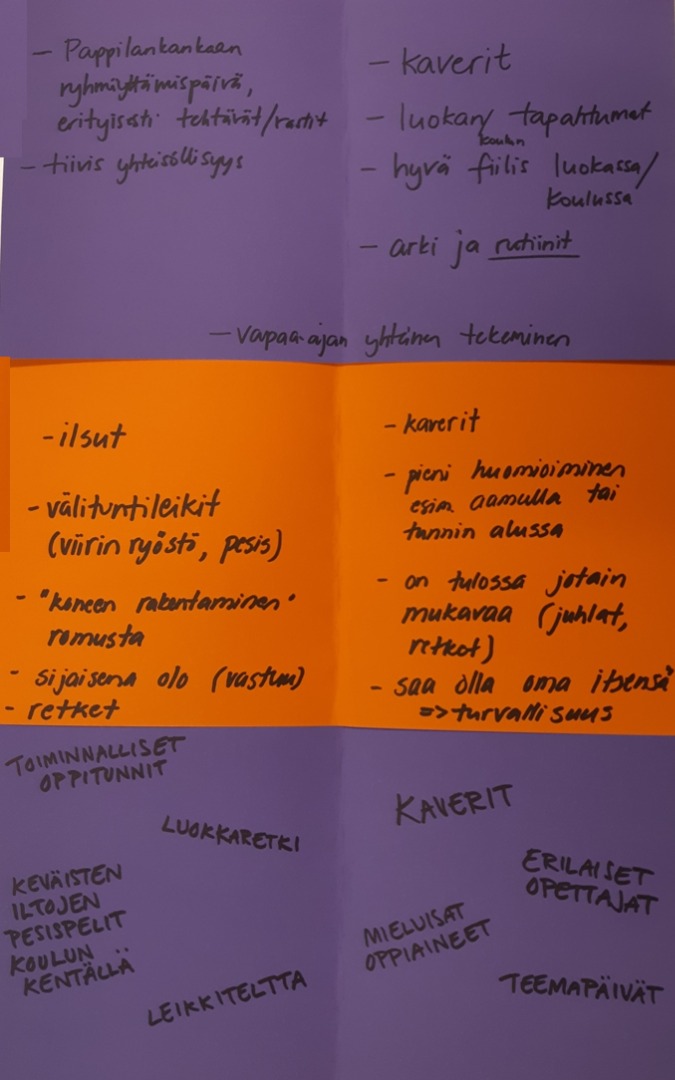 - Pappilankankaan
ryhmäyttämispäivä,
erityisesti tehtävät/rastit
- tiivis yhteisöllisyys
- kaverit
- luokan/ tapahtumat
koulun
- hyvä fiilis luokassa/
koulussa
- arki ja rutiinit
- vapaa-ajan yhteinen tekeminen
- ilsut
- välituntileikit
(viirin ryöstö, pesis)
- "koneen rakentaminen"
romusta
- sijaisena olo (vastuu)
- retket
- kaverit
- pieni huomioiminen
esim. aamulla tai
tunnin alussa
- on tulossa jotain
mukavaa (juhlat,
retket)
- saa olla oma itsensä
=> turvallisuus
TOIMINNALLISET
OPPITUNNIT
LUOKKARETKI
KEVÄISTEN
ILTOJEN
PESISPELIT
KOULUN
KENTÄLLÄ
LEIKKITELTTA
KAVERIT
ERILAISET
OPETTAJAT
MIELUISAT
OPPIAINEET
TEEMAPÄIVÄT